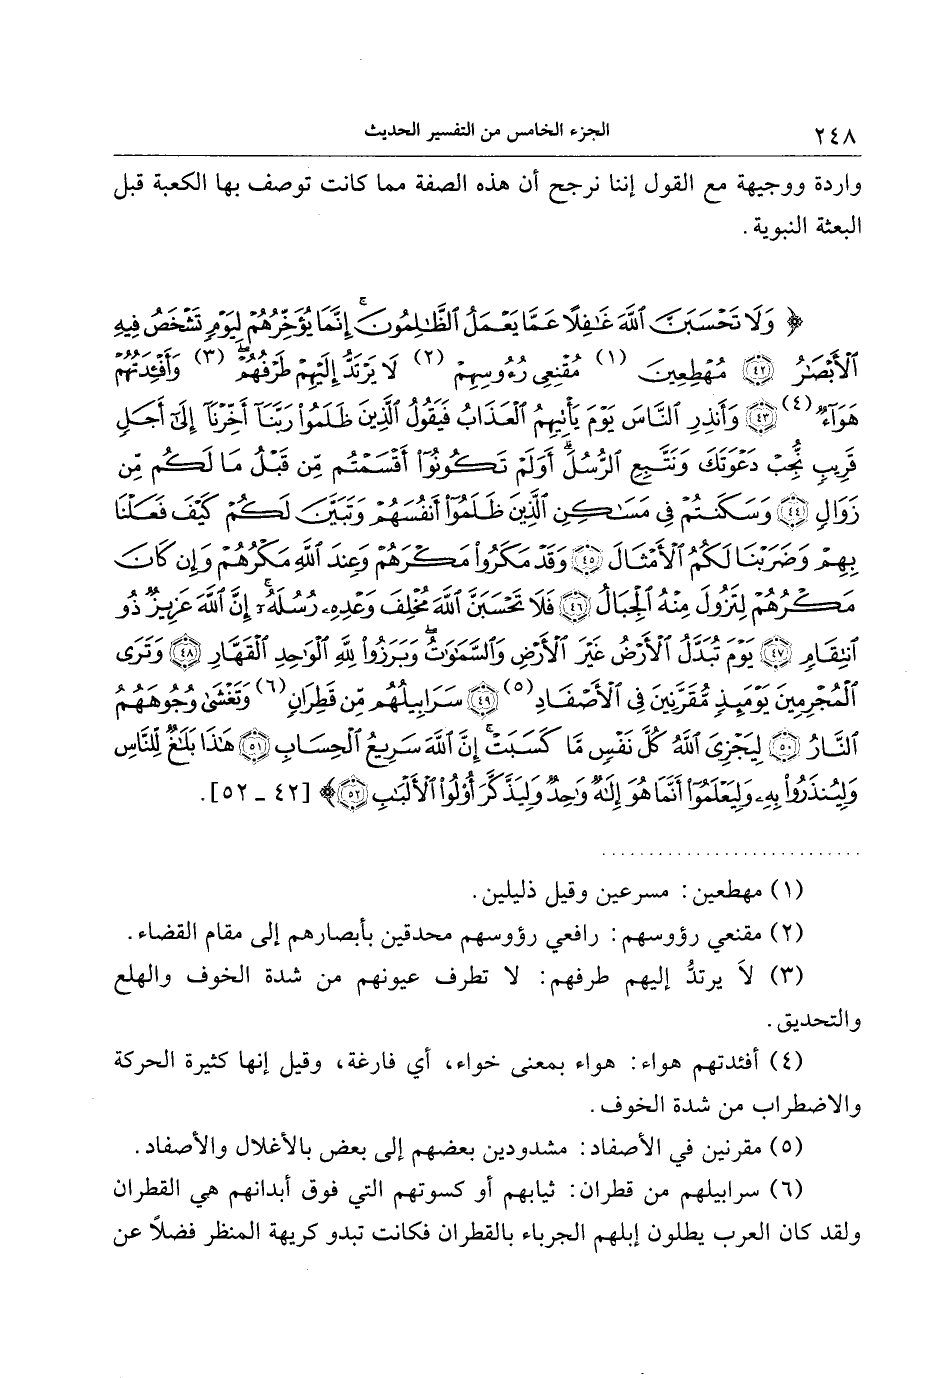 ٢٤٨ الجزء الخامس من التفسير الحديث
واردة ووجيهة مع القول إننا نرجح أن هذه الصفة مما كانت توصف بها الكعبة قبل
البعثة النبوية .
﴿ وَلَا تَحْسَبَنَّ ٱللَّهَ غَٰفِلًا عَمَّا يَعْمَلُ ٱلظَّٰلِمُونَۚ إِنَّمَا يُؤَخِّرُهُمْ لِيَوْمٍ تَشْخَصُ فِيهِ
ٱلْأَبْصَٰرُ ﴿٤٢﴾ مُهْطِعِينَ (١) مُقْنِعِى رُءُوسِهِمْ (٢) لَا يَرْتَدُّ إِلَيْهِمْ طَرْفُهُمْۖ (٣) وَأَفْـِٔدَتُهُمْ
هَوَآءٌ (٤) ﴿٤٣﴾ وَأَنذِرِ ٱلنَّاسَ يَوْمَ يَأْتِيهِمُ ٱلْعَذَابُ فَيَقُولُ ٱلَّذِينَ ظَلَمُوا۟ رَبَّنَآ أَخِّرْنَآ إِلَىٰٓ أَجَلٍ
قَرِيبٍ نُّجِبْ دَعْوَتَكَ وَنَتَّبِعِ ٱلرُّسُلَۗ أَوَلَمْ تَكُونُوٓا۟ أَقْسَمْتُم مِّن قَبْلُ مَا لَكُم مِّن
زَوَالٍ ﴿٤٤﴾ وَسَكَنتُمْ فِى مَسَٰكِنِ ٱلَّذِينَ ظَلَمُوٓا۟ أَنفُسَهُمْ وَتَبَيَّنَ لَكُمْ كَيْفَ فَعَلْنَا
بِهِمْ وَضَرَبْنَا لَكُمُ ٱلْأَمْثَالَ ﴿٤٥﴾ وَقَدْ مَكَرُوا۟ مَكْرَهُمْ وَعِندَ ٱللَّهِ مَكْرُهُمْ وَإِن كَانَ
مَكْرُهُمْ لِتَزُولَ مِنْهُ ٱلْجِبَالُ ﴿٤٦﴾ فَلَا تَحْسَبَنَّ ٱللَّهَ مُخْلِفَ وَعْدِهِۦ رُسُلَهُۥٓۚ إِنَّ ٱللَّهَ عَزِيزٌ ذُو
ٱنتِقَامٍ ﴿٤٧﴾ يَوْمَ تُبَدَّلُ ٱلْأَرْضُ غَيْرَ ٱلْأَرْضِ وَٱلسَّمَٰوَٰتُۖ وَبَرَزُوا۟ لِلَّهِ ٱلْوَٰحِدِ ٱلْقَهَّارِ ﴿٤٨﴾ وَتَرَى
ٱلْمُجْرِمِينَ يَوْمَئِذٍ مُّقَرَّنِينَ فِى ٱلْأَصْفَادِ (٥) ﴿٤٩﴾ سَرَابِيلُهُم مِّن قَطِرَانٍ (٦) وَتَغْشَىٰ وُجُوهَهُمُ
ٱلنَّارُ ﴿٥٠﴾ لِيَجْزِىَ ٱللَّهُ كُلَّ نَفْسٍ مَّا كَسَبَتْۚ إِنَّ ٱللَّهَ سَرِيعُ ٱلْحِسَابِ ﴿٥١﴾ هَٰذَا بَلَٰغٌ لِّلنَّاسِ
وَلِيُنذَرُوا۟ بِهِۦ وَلِيَعْلَمُوٓا۟ أَنَّمَا هُوَ إِلَٰهٌ وَٰحِدٌ وَلِيَذَّكَّرَ أُو۟لُوا۟ ٱلْأَلْبَٰبِ ﴿٥٢﴾ ﴾ [٤٢ ـ ٥٢].
(١) مهطعين : مسرعين وقيل ذليلين .
(٢) مقنعي رؤوسهم : رافعي رؤوسهم محدقين بأبصارهم إلى مقام القضاء .
(٣) لاَ يرتدُّ إليهم طرفهم : لا تطرف عيونهم من شدة الخوف والهلع
والتحديق .
(٤) أفئدتهم هواء : هواء بمعنى خواء، أي فارغة، وقيل إنها كثيرة الحركة
والاضطراب من شدة الخوف .
(٥) مقرنين في الأصفاد : مشدودين بعضهم إلى بعض بالأغلال والأصفاد .
(٦) سرابيلهم من قطران : ثيابهم أو كسوتهم التي فوق أبدانهم هي القطران
ولقد كان العرب يطلون إبلهم الجرباء بالقطران فكانت تبدو كريهة المنظر فضلاً عن